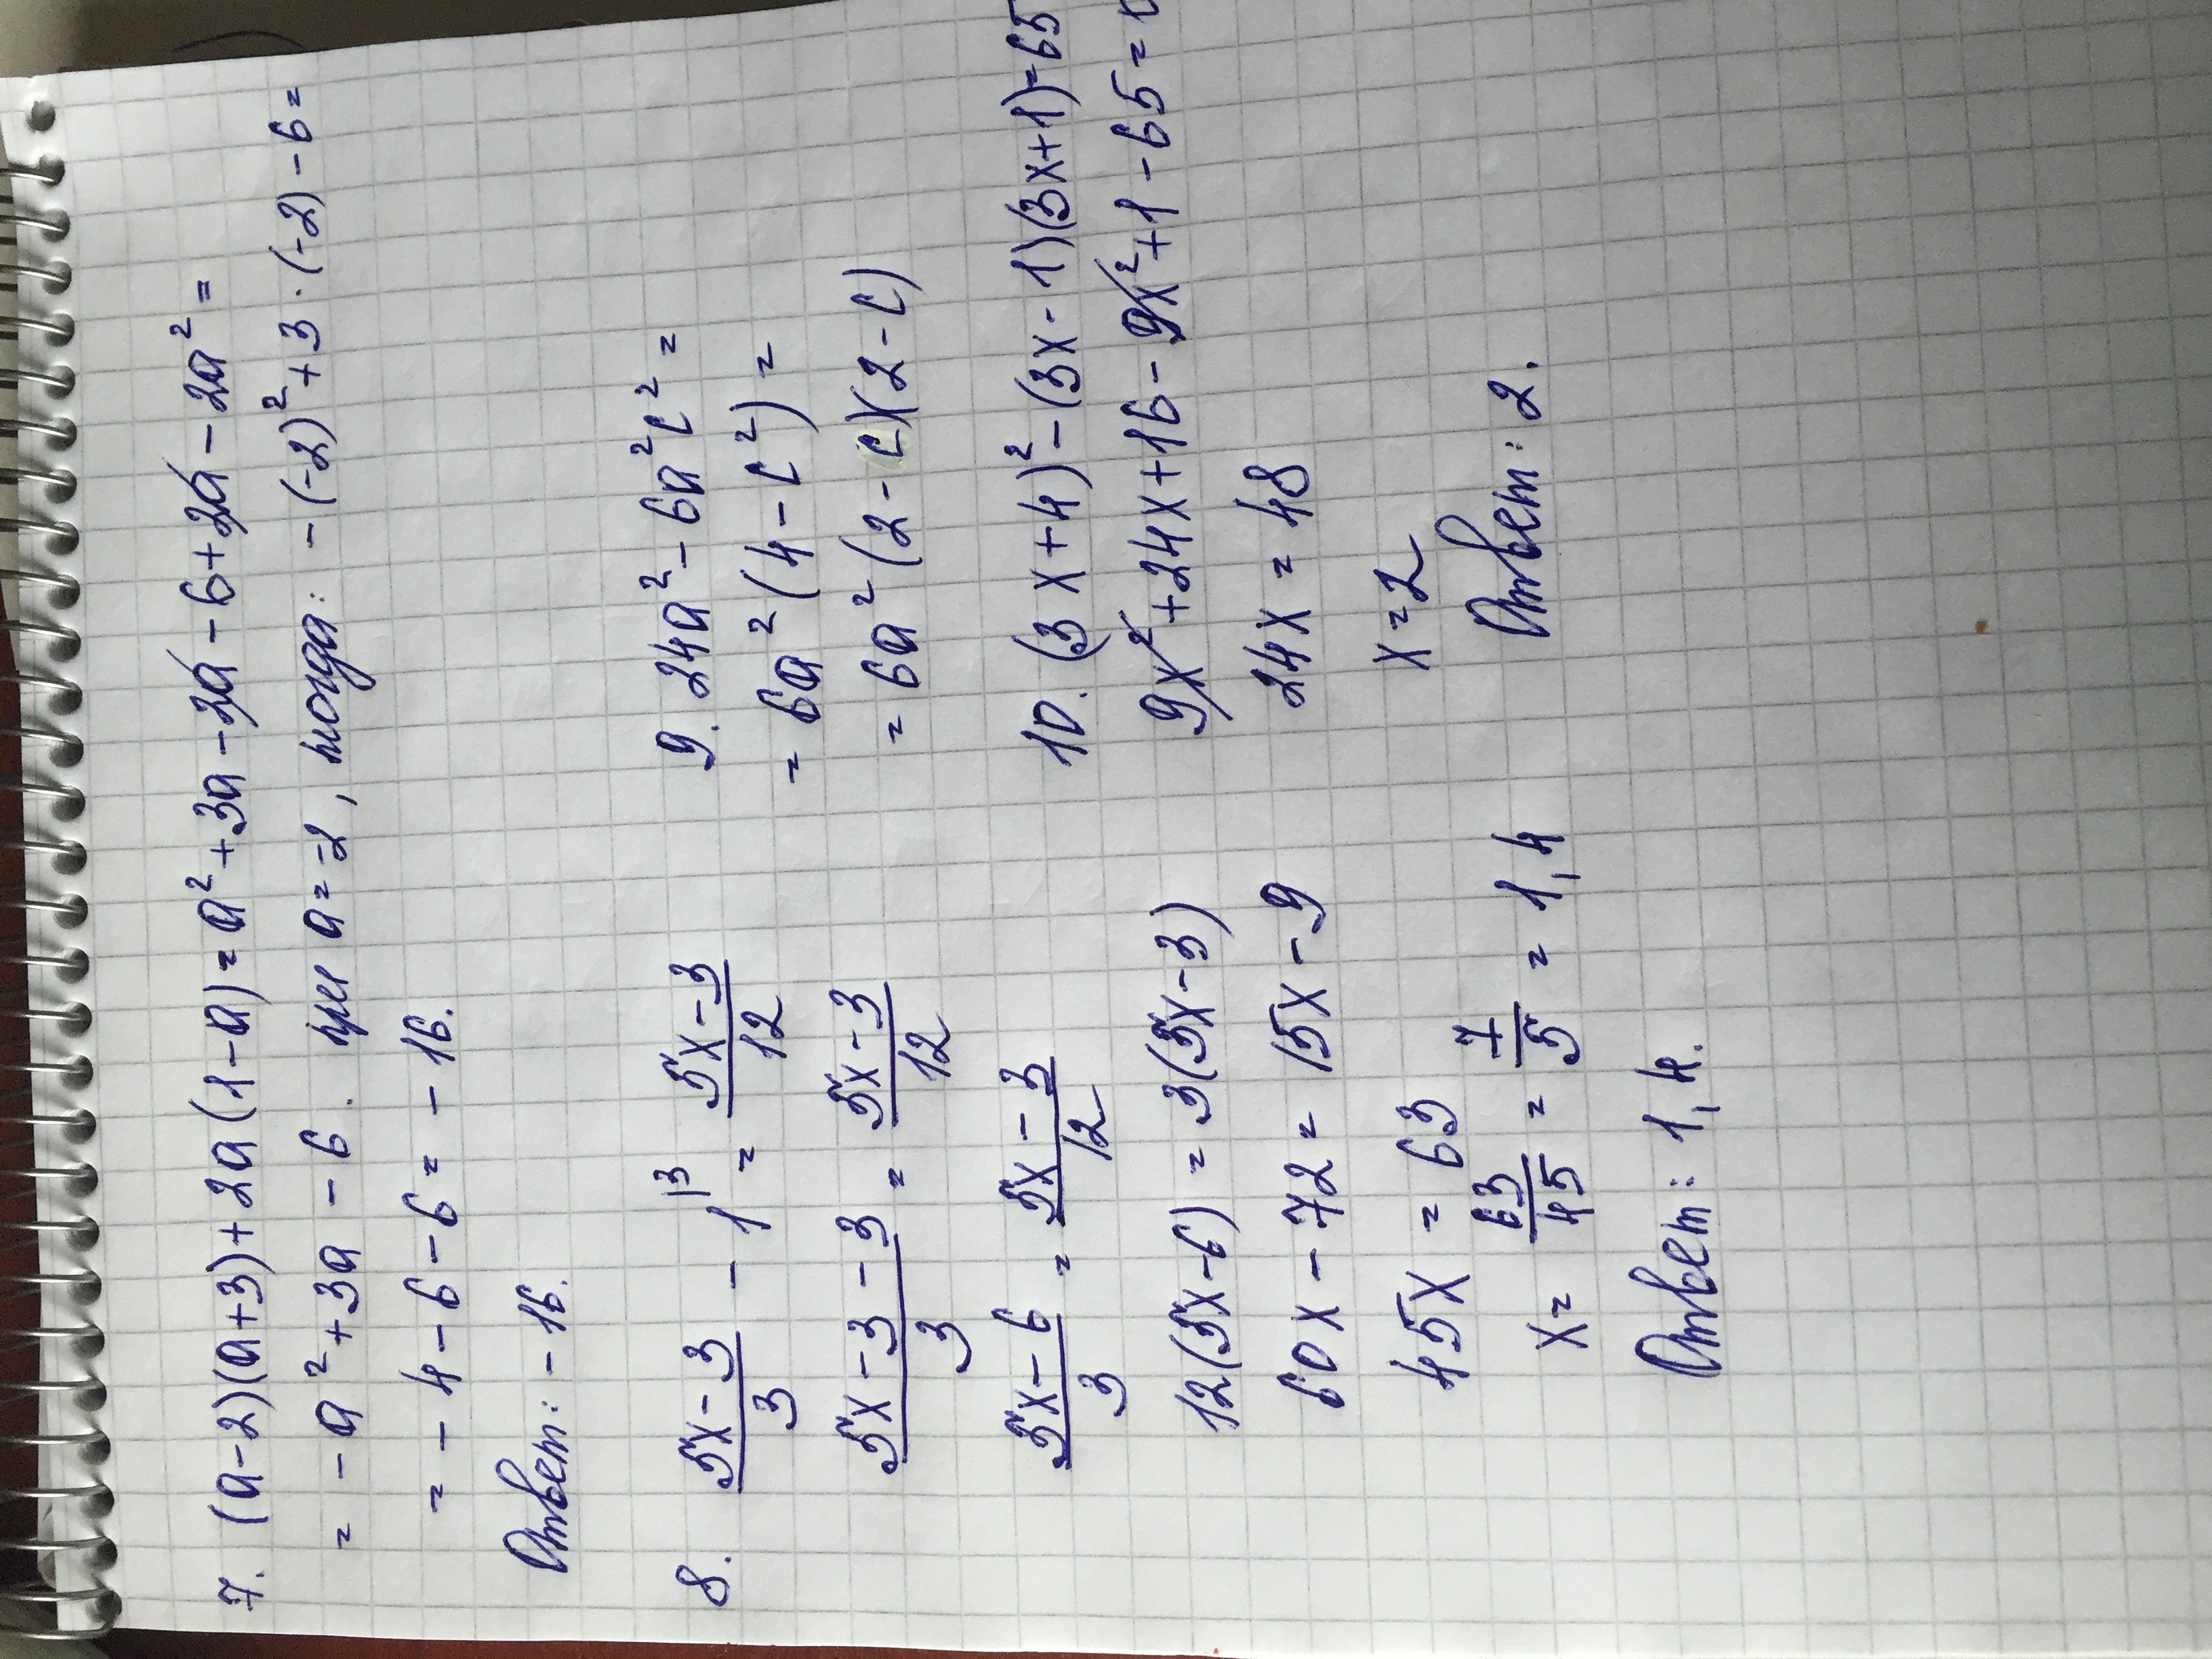 7. (a-2)(a+3)+2a(1-a)=a²+3a-2a-6+2a-2a²=
= -a²+3a-6. при a=-2, тогда: -(-2)²+3·(-2)-6=
= -4-6-6= -16.
Ответ: -16.
8. (5x-3)/3 - 1|³ = (5x-3)/12
(5x-3-3)/3 = (5x-3)/12
(5x-6)/3 = (5x-3)/12
12(5x-6) = 3(5x-3)
60x-72 = 15x-9
45x = 63
x = 63/45 = 7/5 = 1,4
Ответ: 1,4.
9. 24a²-6a²c²=
= 6a²(4-c²)=
= 6a²(2-c)(2-c)
10. (3x+4)²-(3x-1)(3x+1)=65
9x²+24x+16-9x²+1-65=
24x = 48
x=2
Ответ: 2.